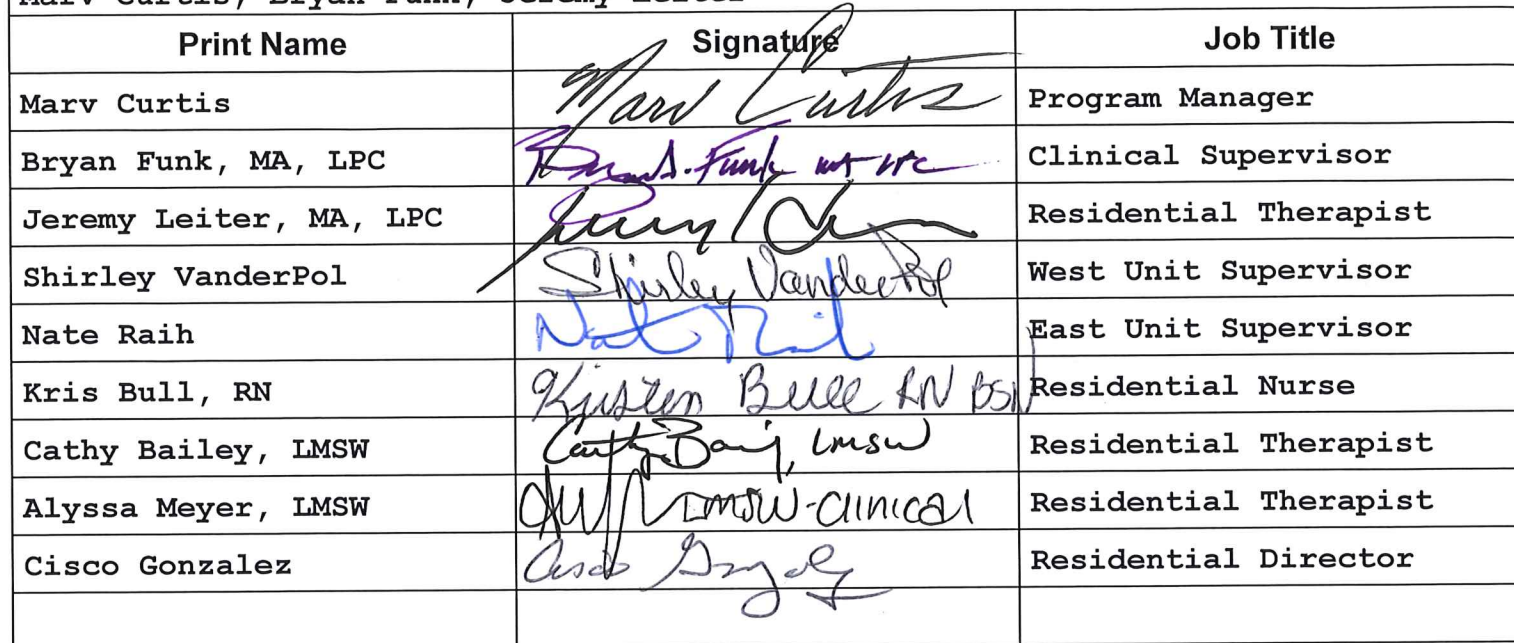 Marv Curtis, Bryan Funk, Jeremy Leiter
Print Name Signature Job Title
Marv Curtis Marv Curtis Program Manager
Bryan Funk, MA, LPC Funk Clinical Supervisor
Jeremy Leiter, MA, LPC Residential Therapist
Shirley VanderPol Shirley VanderPol West Unit Supervisor
Nate Raih Nate Raih East Unit Supervisor
Kris Bull, RN Kristen Bull RN BSN Residential Nurse
Cathy Bailey, LMSW Cathy Bailey, LMSW Residential Therapist
Alyssa Meyer, LMSW LMSW-Clinical Residential Therapist
Cisco Gonzalez Cisco Gonzalez Residential Director